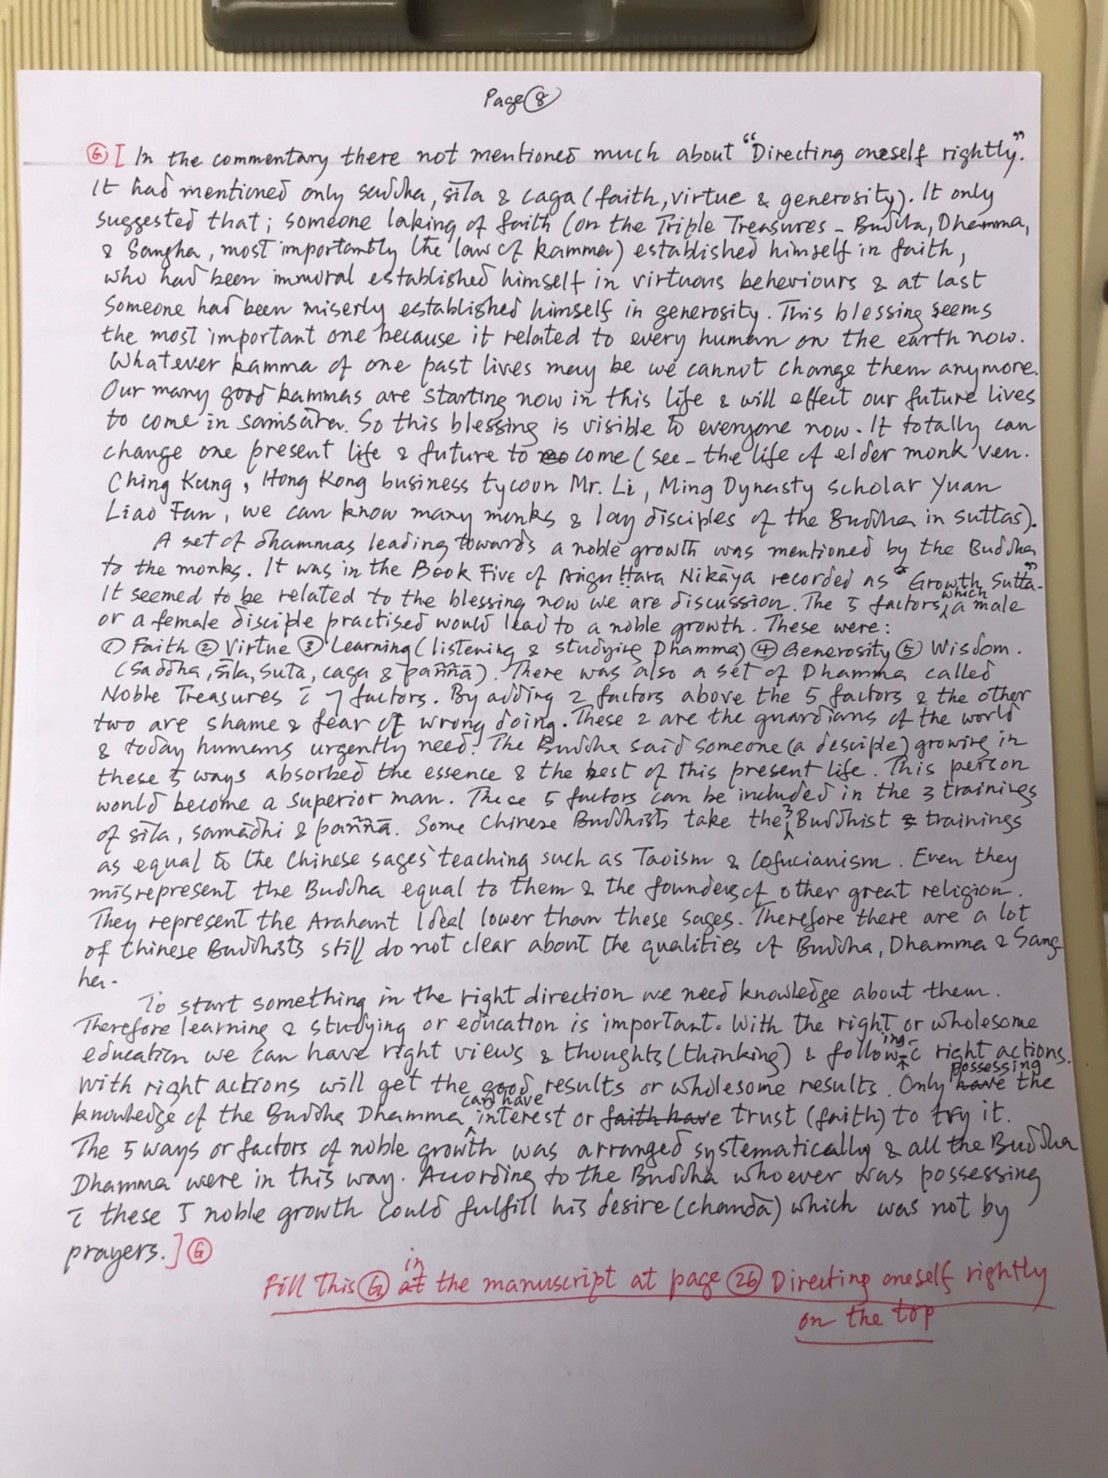 Page 8
G [ In the commentary there not mentioned much about "Directing oneself rightly".
It had mentioned only saddha, sīla & caga (faith, virtue & generosity). It only
suggested that; someone laking of faith (on the Triple Treasures - Buddha, Dhamma,
& Sangha, most importantly the law of kamma) established himself in faith,
who had been immoral established himself in virtuous beheviours & at last
someone had been miserly established himself in generosity. This blessing seems
the most important one because it related to every human on the earth now.
Whatever kamma of one past lives may be we cannot change them anymore.
Our many good kammas are starting now in this life & will effect our future lives
to come in samsāra. So this blessing is visible to everyone now. It totally can
change one present life & future to come (see - the life of elder monk Ven.
Ching Kung, Hong Kong business tycoon Mr. Li, Ming Dynasty scholar Yuan
Liao Fan, we can know many monks & lay disciples of the Buddha in suttas).
A set of dhammas leading towards a noble growth was mentioned by the Buddha
to the monks. It was in the Book Five of Aṅguttara Nikāya recorded as "Growth Sutta".
It seemed to be related to the blessing now we are discussion. The 5 factors which a male
or a female disciple practised would lead to a noble growth. These were:
① Faith ② Virtue ③ Learning (listening & studying Dhamma) ④ Generosity ⑤ Wisdom.
(Saddha, sīla, suta, caga & paññā). There was also a set of Dhamma called
Noble Treasures c̄ 7 factors. By adding 2 factors above the 5 factors & the other
two are shame & fear of wrong doing. These 2 are the guardians of the world
& today humans urgently need. The Buddha said someone (a desciple) growing in
these 5 ways absorbed the essence & the best of this present life. This person
would become a superior man. These 5 factors can be included in the 3 trainings
of sīla, samādhi & paññā. Some Chinese Buddhists take the 3 Buddhist trainings
as equal to the Chinese sages' teaching such as Taoism & Cofucianism. Even they
misrepresent the Buddha equal to them & the founders of other great religion.
They represent the Arahant Ideal lower than these sages. Therefore there are a lot
of Chinese Buddhists still do not clear about the qualities of Buddha, Dhamma & Sang
ha.
To start something in the right direction we need knowledge about them.
Therefore learning & studying or education is important. With the right or wholesome
education we can have right views & thoughts (thinking) & following c̄ right actions.
With right actions will get the good results or wholesome results. Only possessing the
knowledge of the Buddha Dhamma can have interest or trust (faith) to try it.
The 5 ways or factors of noble growth was arranged systematically & all the Buddha
Dhamma were in this way. According to the Buddha whoever was possessing
c̄ these 5 noble growth could fulfill his desire (chanda) which was not by
prayers. ] G
Fill This G in the manuscript at page 26 Directing oneself rightly
on the top